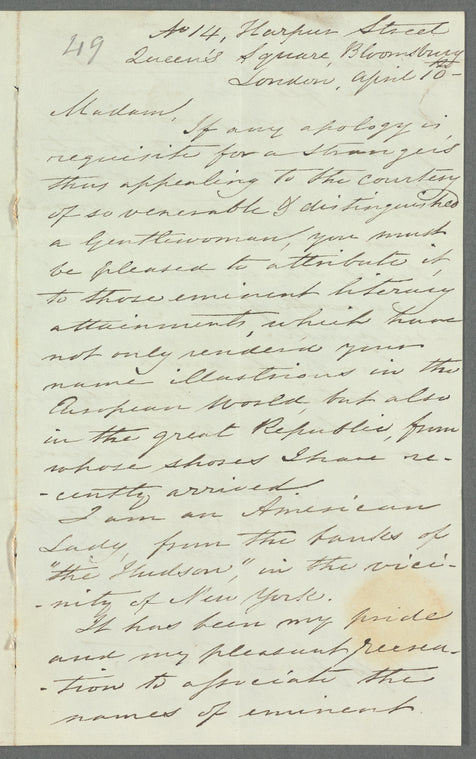 49
No 14, Harpur Street
Queen's Square, Bloomsbury
London, April 10th-
Madam,
If any apology is
requisite for a stranger's
thus appealing to the courtesy
of so venerable & distinguished
a Gentlewoman, you must
be pleased to attribute it,
to those eminent literary
attainments, which have
not only render'd your
name illustrious in the
European World, but also
in the great Republic, from
whose shores I have re-
-cently arrived
I am an American
Lady, from the banks of
"the Hudson," in the vici-
-nity of New York.
It has been my pride
and my pleasant recrea-
-tion to associate the
names of eminent